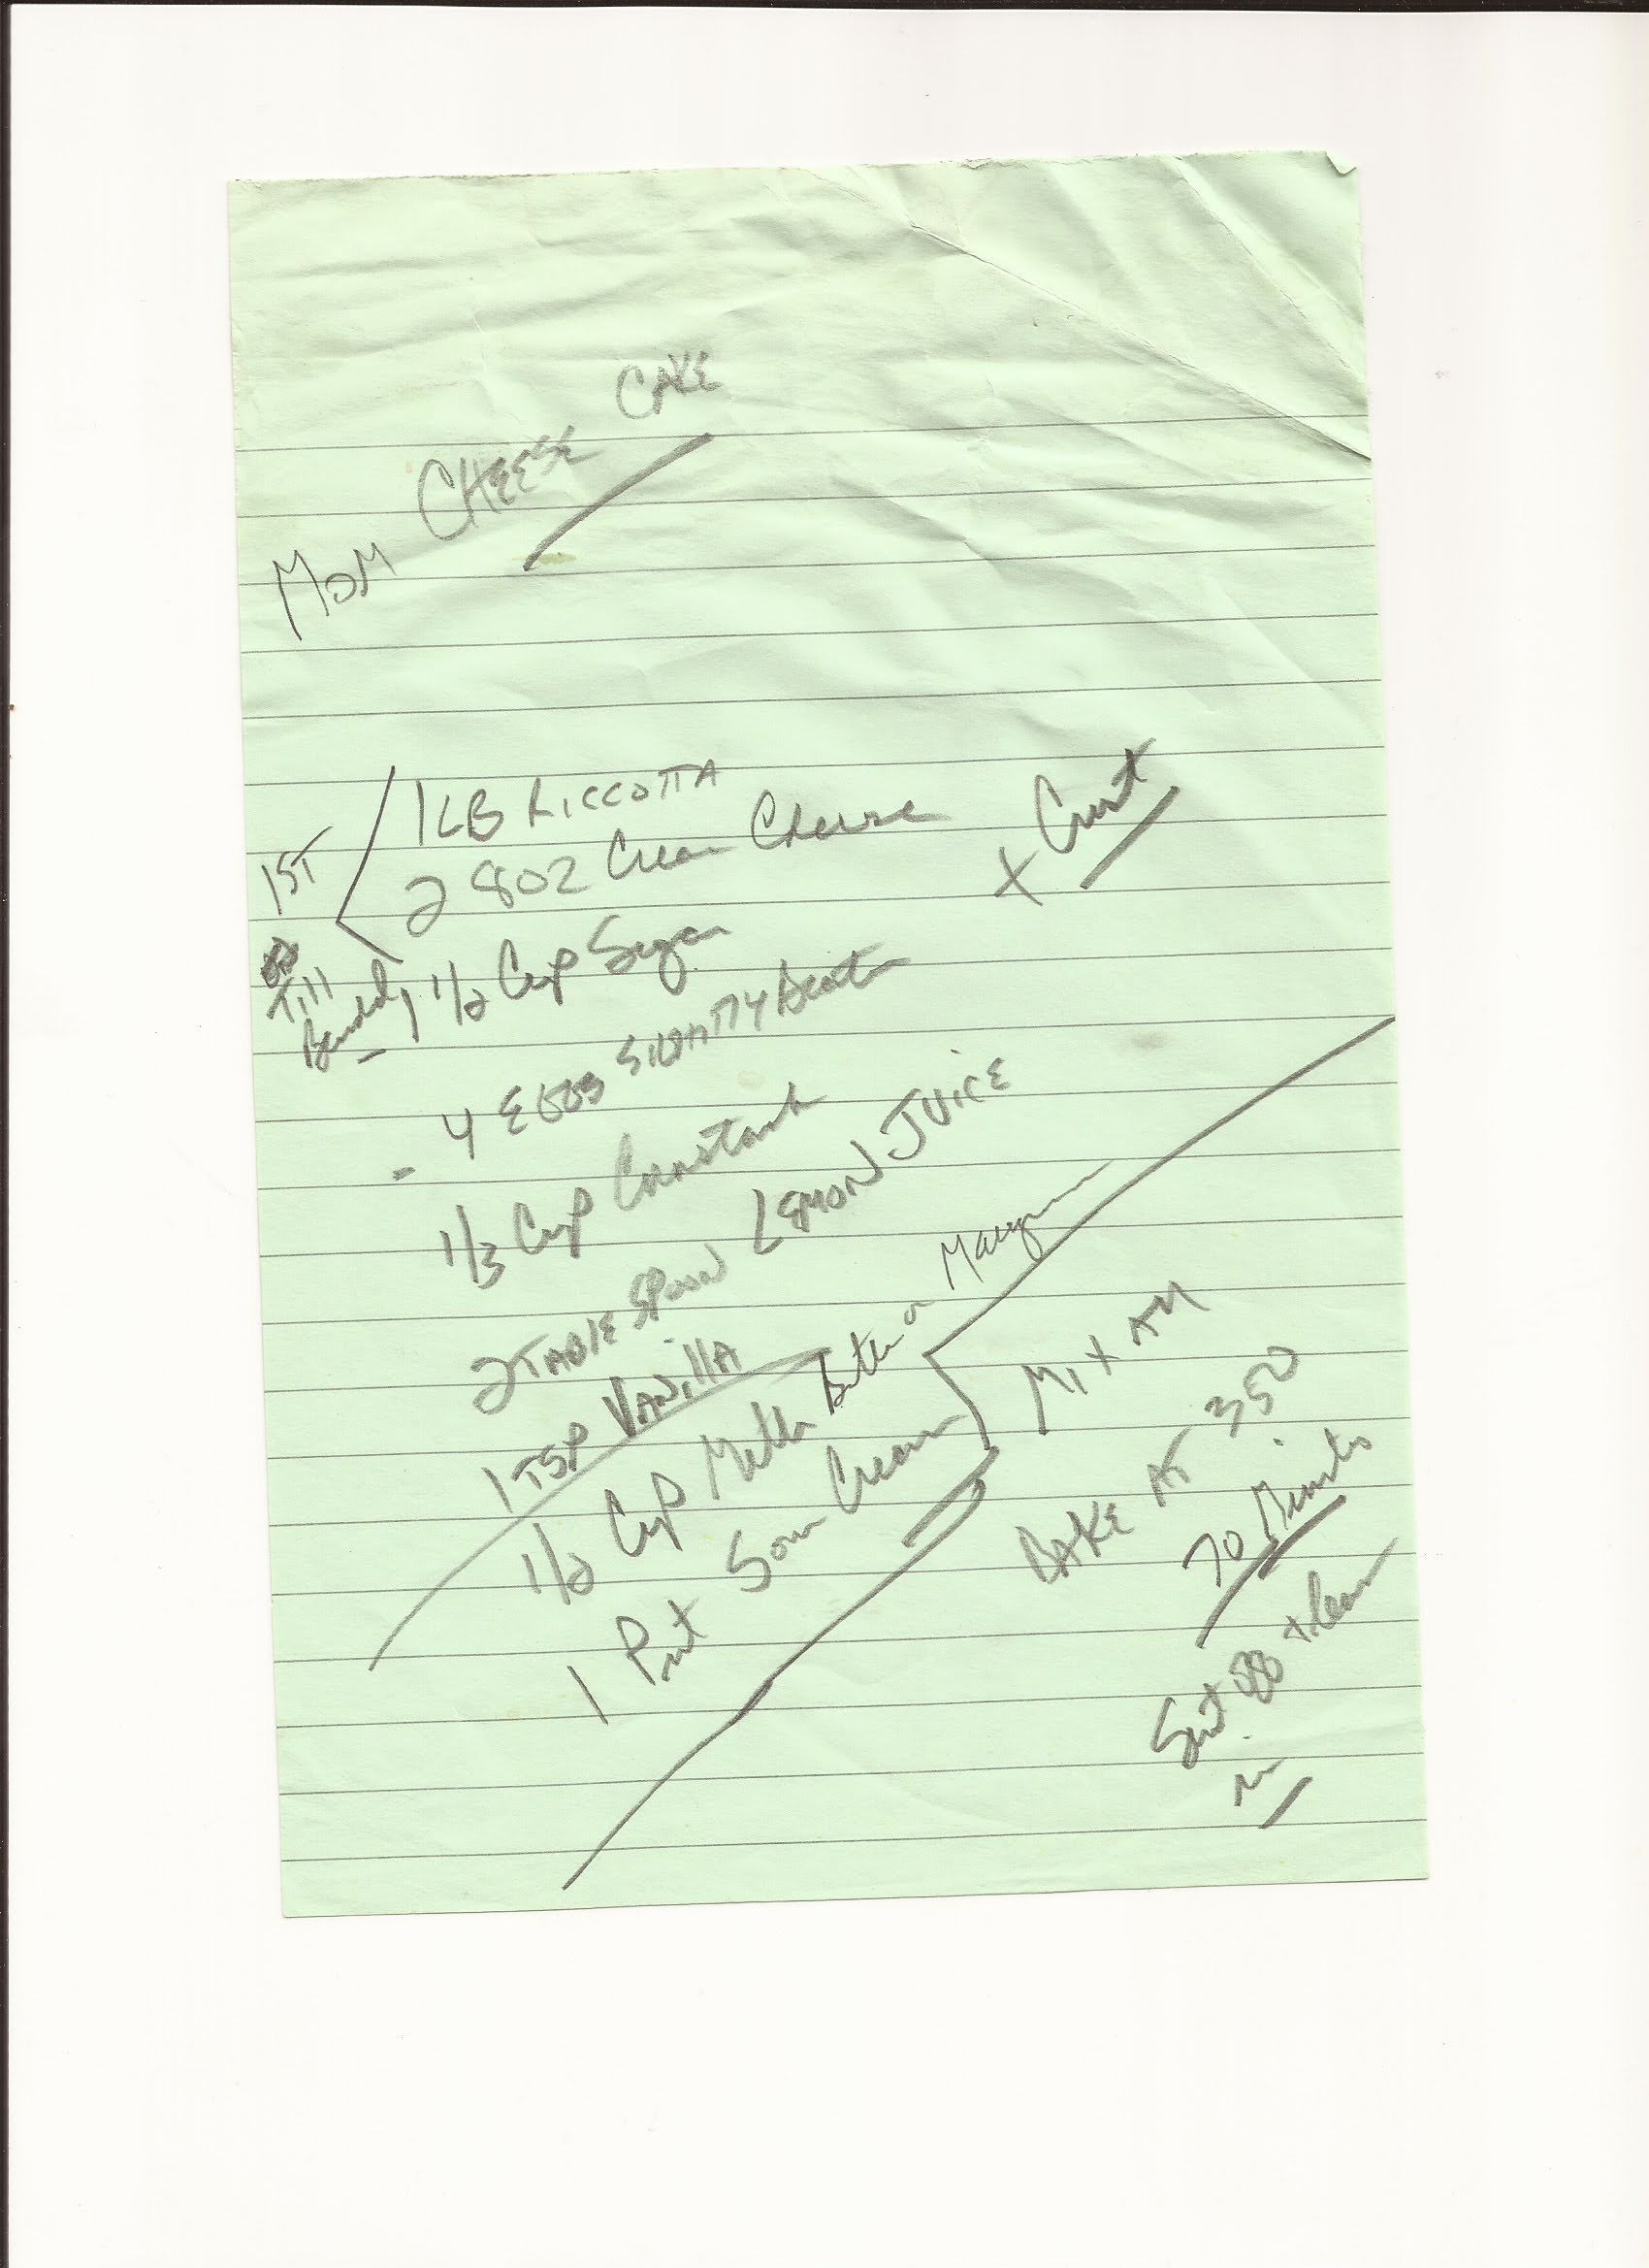 MOM CHEESE CAKE
1ST
Till
1 LB RICCOTTA
2 8OZ Cream Cheese
+ Crust
1 1/2 Cup Sugar
- 4 EGGS SlIGHTly Beaten
1/3 Cup Cornstarch
2 TABlE SPOON LEMON JUICE
1 TSP VANillA
1/2 Cup Melted Butter or Margarine
1 Pint Sour Cream
MIX All
BAKE AT 350
70 Minutes
Shut off + leave
in